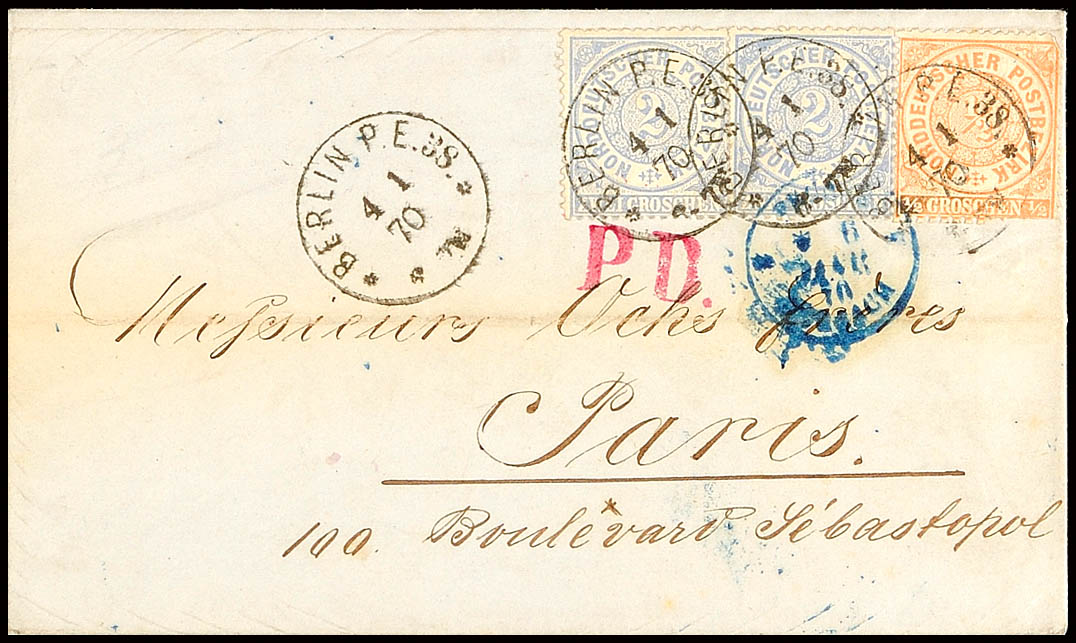 NORDDEUTSCHER POSTBEZIRK
2
GROSCHEN
NORDDEUTSCHER POSTBEZIRK
2
GROSCHEN
NORDDEUTSCHER POSTBEZIRK
½ GROSCHEN ½
BERLIN P.E.38.
4 1
70
BERLIN P.E.38.
4 1
70
BERLIN P.E.38.
4 1
70
BERLIN P.E.38.
4 1
P.D.
6
JANV
70
Messieurs Ochs frères
Paris.
100. Boulevard Sébastopol